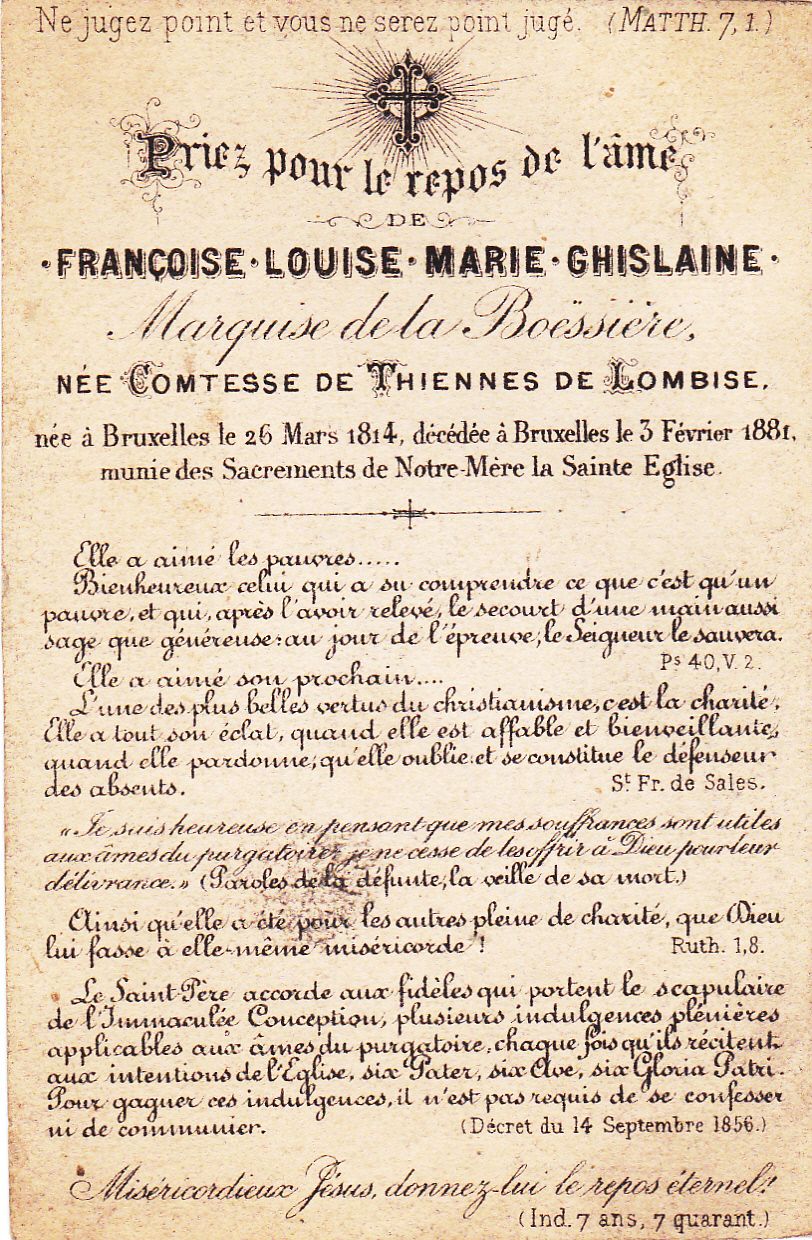 Ne jugez point et vous ne serez point jugé. (MATTH. 7, 1.)
Priez pour le repos de l'âme
DE
· FRANÇOISE · LOUISE · MARIE · GHISLAINE ·
Marquise de la Boëssière,
NÉE COMTESSE DE THIENNES DE LOMBISE,
née à Bruxelles le 26 Mars 1814, décédée à Bruxelles le 3 Février 1881,
munie des Sacrements de Notre-Mère la Sainte Eglise.
Elle a aimé les pauvres.....
Bienheureux celui qui a su comprendre ce que c'est qu'un
pauvre, et qui, après l'avoir relevé, le secourt d'une main aussi
sage que généreuse: au jour de l'épreuve, le Seigneur le sauvera.
Ps 40, V. 2.
Elle a aimé son prochain....
L'une des plus belles vertus du christianisme, c'est la charité;
Elle a tout son éclat, quand elle est affable et bienveillante,
quand elle pardonne, qu'elle oublie et se constitue le défenseur
des absents. St Fr. de Sales.
« Je suis heureuse en pensant que mes souffrances sont utiles
aux âmes du purgatoire, je ne cesse de les offrir à Dieu pour leur
délivrance. » (Paroles de la défunte, la veille de sa mort.)
Ainsi qu'elle a été pour les autres pleine de charité, que Dieu
lui fasse à elle-même miséricorde ! Ruth. 1, 8.
Le Saint-Père accorde aux fidèles qui portent le scapulaire
de l'Immaculée Conception, plusieurs indulgences plénières
applicables aux âmes du purgatoire, chaque fois qu'ils récitent
aux intentions de l'Eglise, six Pater, six Ave, six Gloria Patri.
Pour gagner ces indulgences, il n'est pas requis de se confesser
ni de communier. (Décret du 14 Septembre 1856.)
Miséricordieux Jésus, donnez-lui le repos éternel!
(Ind. 7 ans, 7 quarant.)